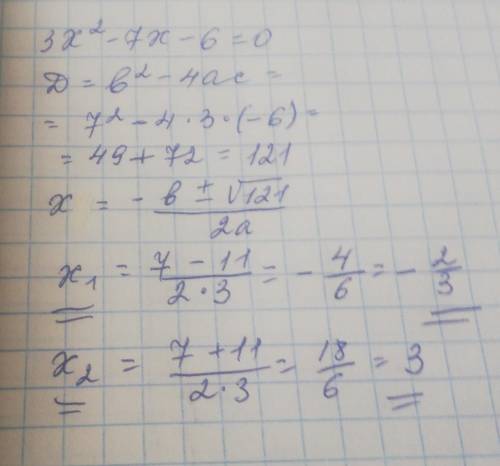 3x² - 7x - 6 = 0
D = b² - 4ac =
= 7² - 4 · 3 · (-6) =
= 49 + 72 = 121
x = - b ± √121 / 2a
x₁ = 7 - 11 / 2 · 3 = - 4/6 = - 2/3
x₂ = 7 + 11 / 2 · 3 = 18/6 = 3